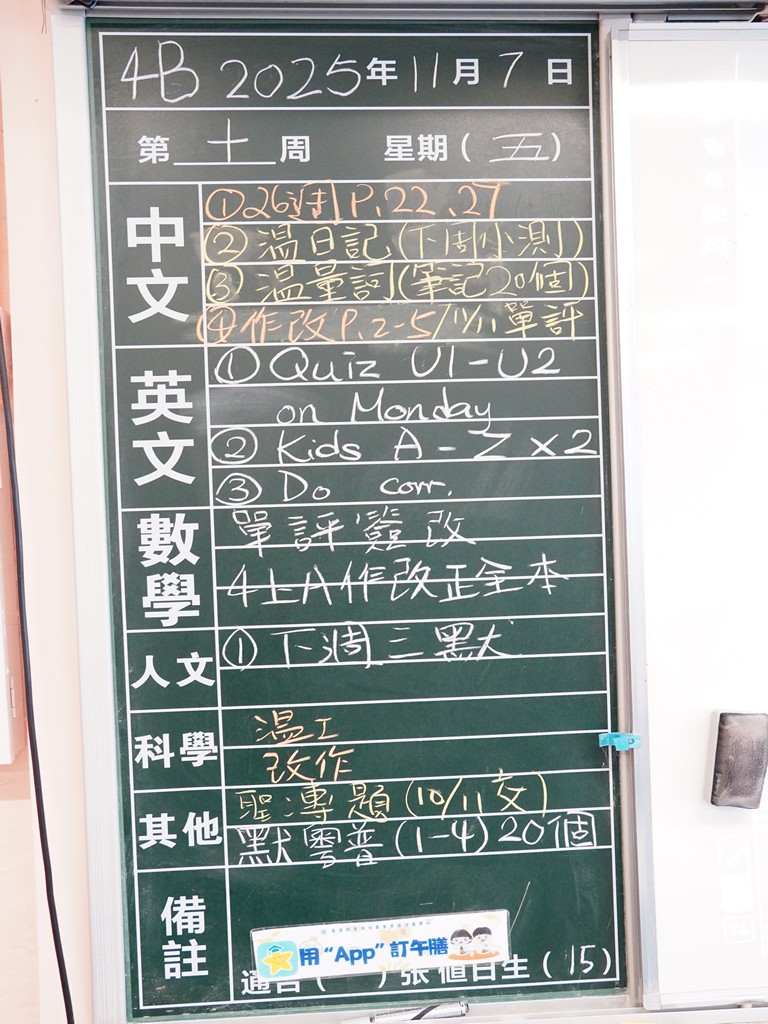 4B 2025年11月7日
第十周 星期(五)
中文
①26週P.22、27
②溫日記(下周小測)
③溫量詞(筆記20個)
④作改P.2-5/11/11單評
英文
①Quiz U1-U2
on Monday
②Kids A-Z x2
③Do corr.
數學
單評簽改
4上A作改正全本
人文
①下週三默
科學
溫工
改作
其他
聖專題(10/11交)
默粵普(1-4)20個
備註
用“App”訂午膳
通告( )張 值日生(15)